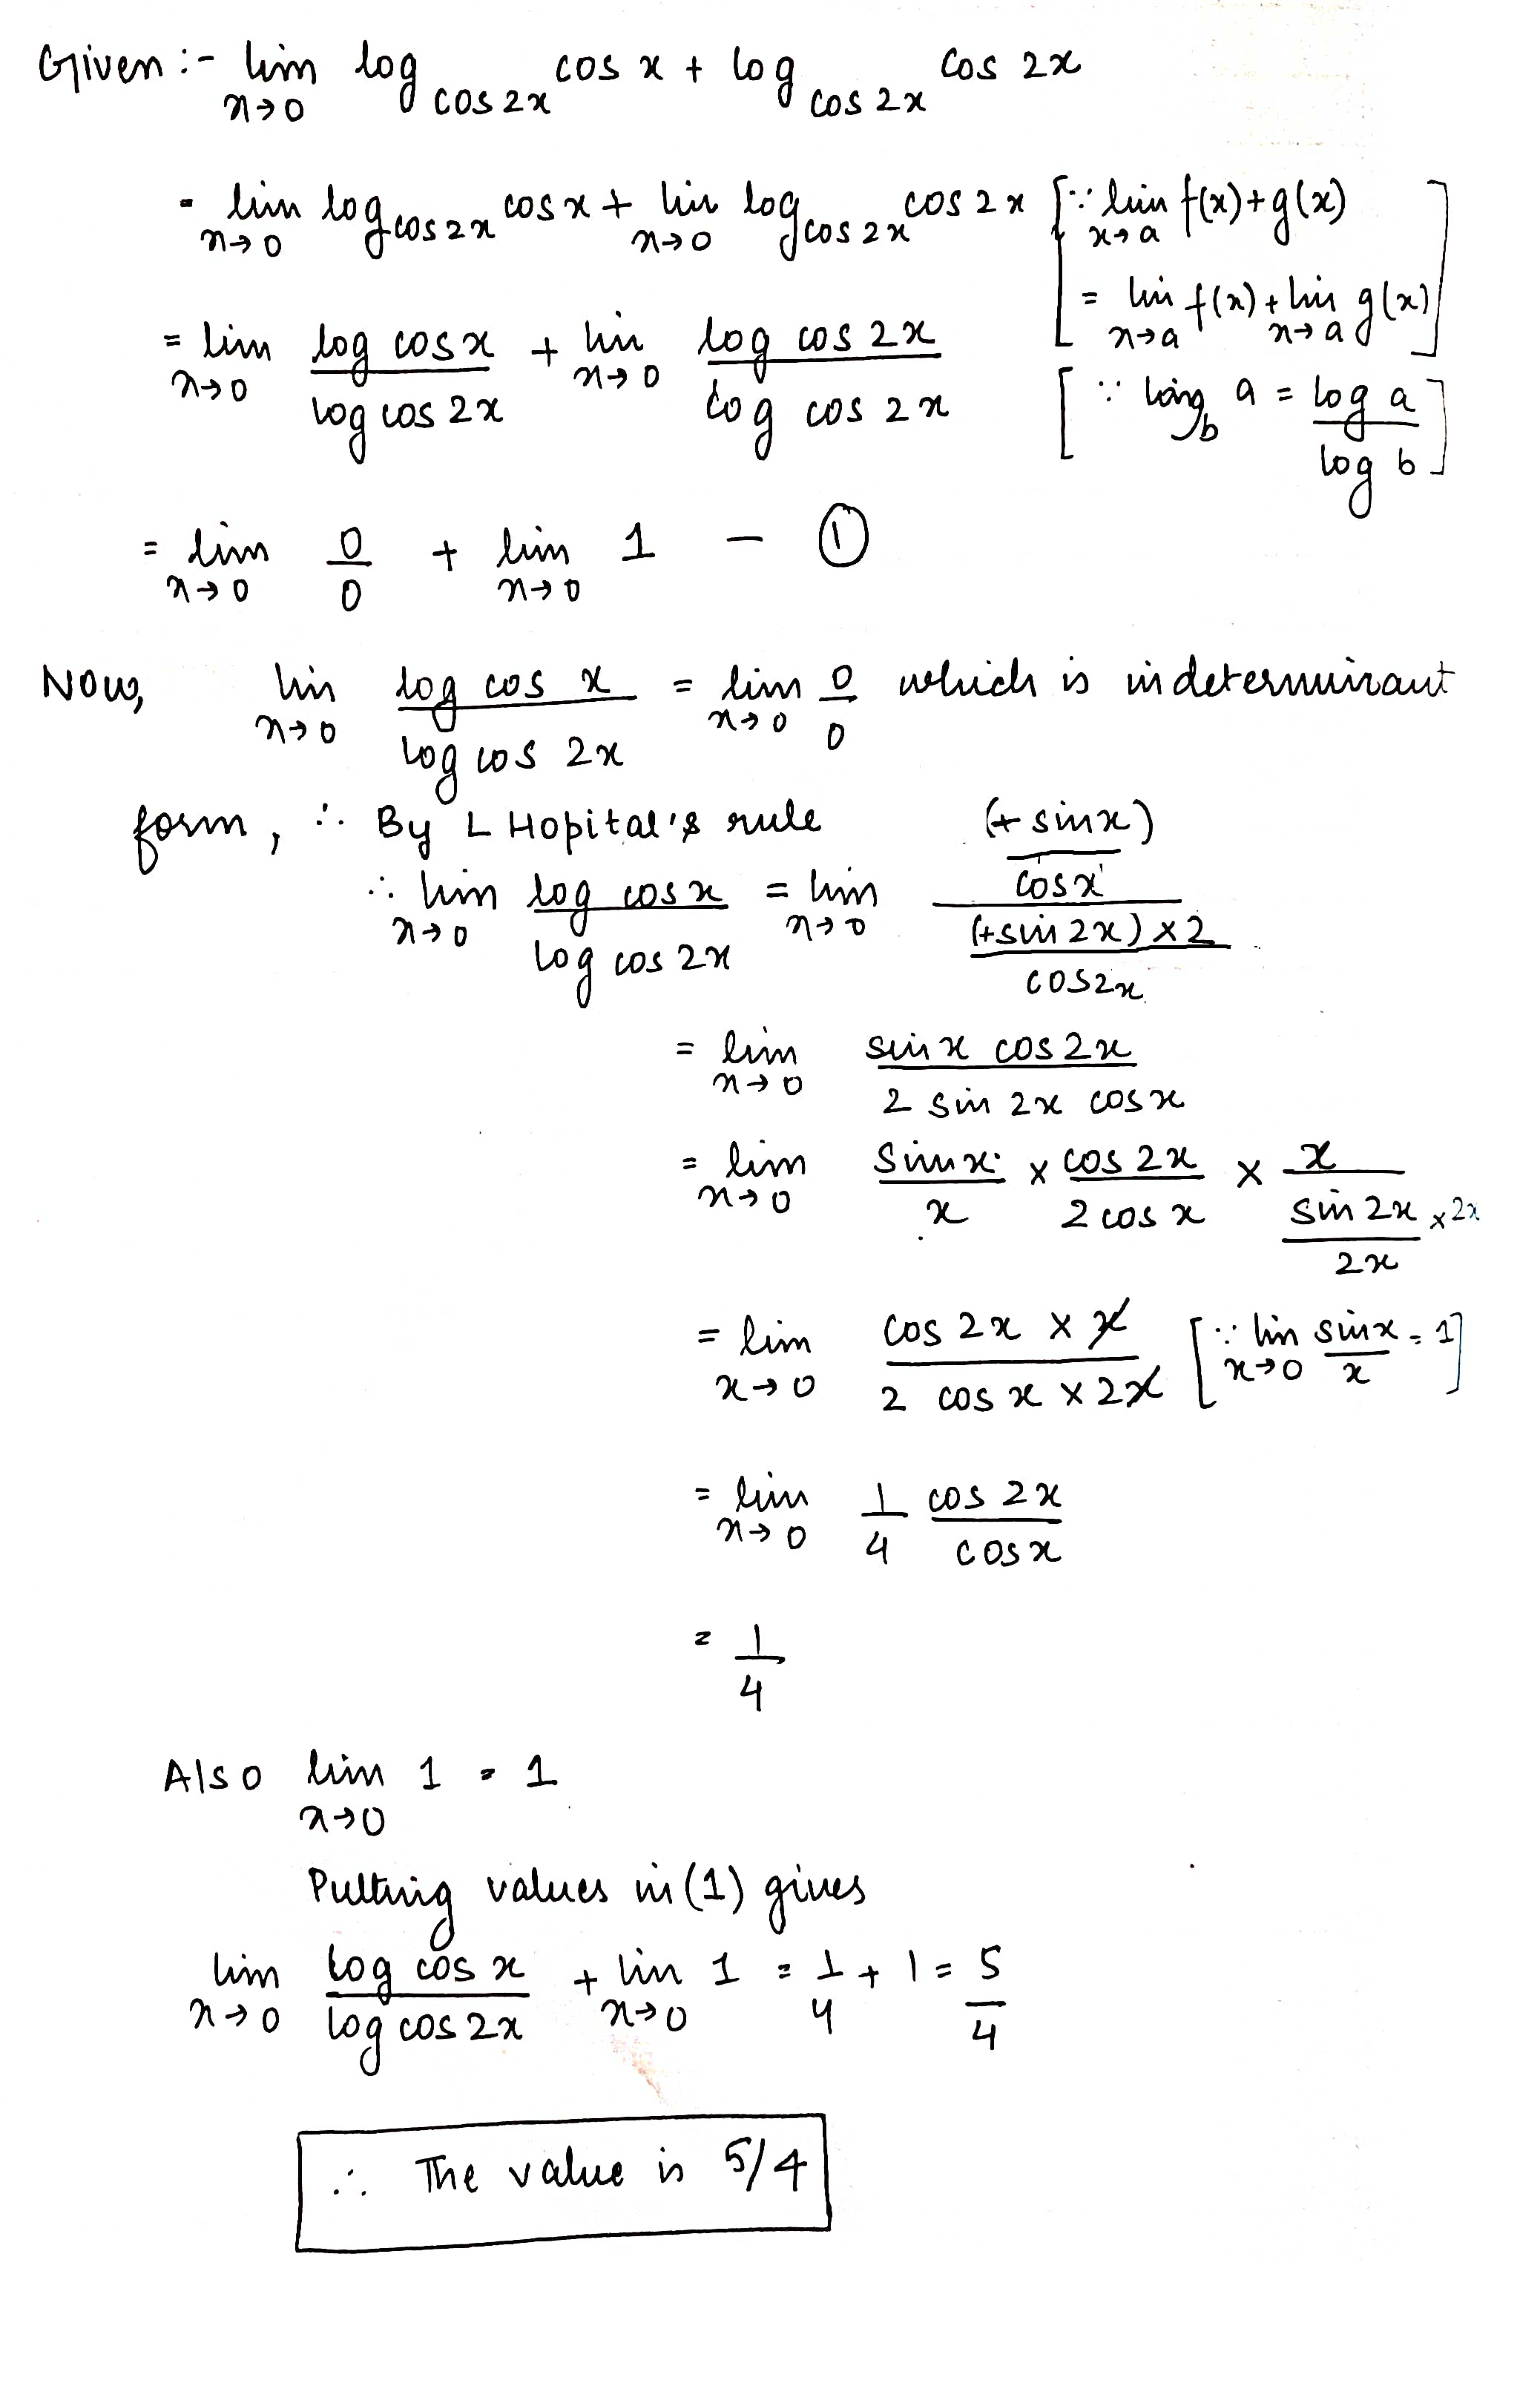 Given :- lim x→0 log cos2x cos x + log cos 2x cos 2x
= lim x→0 log cos2x cos x + lim x→0 log cos 2x cos 2x [∵ lim x→a f(x)+g(x)
= lim x→a f(x) + lim x→a g(x)]
= lim x→0 log cos x / log cos 2x + lim x→0 log cos 2x / log cos 2x [∵ log b a = log a / log b]
= lim x→0 0/0 + lim x→0 1 – ①
Now, lim x→0 log cos x / log cos 2x = lim x→0 0/0 which is indeterminant
form, ∴ By L Hopital's rule
∴ lim x→0 log cos x / log cos 2x = lim x→0 ((+ sinx) / cosx) / ((+sin 2x) × 2 / cos2x)
= lim x→0 sin x cos 2x / 2 sin 2x cos x
= lim x→0 sin x / x × cos 2x / 2 cos x × x / (sin 2x / 2x × 2x)
= lim x→0 cos 2x × x / 2 cos x × 2x [∵ lim x→0 sinx / x = 1]
= lim x→0 1/4 cos 2x / cos x
= 1/4
Also lim x→0 1 = 1
Putting values in (1) gives
lim x→0 log cos x / log cos 2x + lim x→0 1 = 1/4 + 1 = 5/4
∴ The value is 5/4